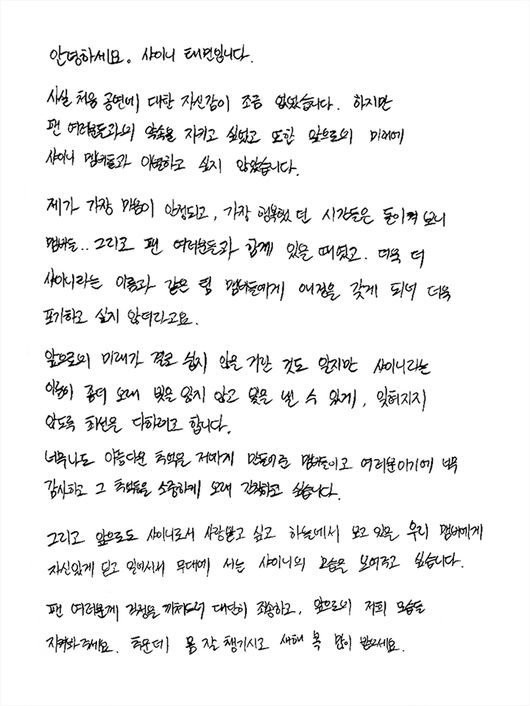 안녕하세요. 샤이니 태민입니다.
사실 처음 공연에 대한 자신감이 조금 없었습니다. 하지만
팬 여러분들과의 약속을 지키고 싶었고 또한 앞으로의 미래에
샤이니 멤버들과 이별하고 싶지 않았습니다.
제가 가장 마음이 안정되고, 가장 행복했던 시간들은 돌이켜 보니
멤버들.. 그리고 팬 여러분들과 함께 있을 때였고. 더욱 더
샤이니라는 이름과 같은 팀 멤버들에게 애정을 갖게 되서 더욱
포기하고 싶지 않더라고요.
앞으로의 미래가 결코 쉽지 않을 거란 것도 알지만 샤이니라는
이름이 좀더 오래 빛을 잃지 않고 빛을 낼 수 있게, 잊혀지지
않도록 최선을 다하려고 합니다.
너무나도 아름다운 추억을 저에게 만들어준 멤버들이고 여러분이기에 너무
감사하고 그 추억들을 소중하게 오래 간직하고 싶습니다.
그리고 앞으로도 샤이니로서 사랑받고 싶고 하늘에서 보고 있을 우리 멤버에게
자신있게 딛고 일어서서 무대에 서는 샤이니의 모습을 보여주고 싶습니다.
팬 여러분께 걱정을 끼쳐드려 대단히 죄송하고, 앞으로의 저희 모습을
지켜봐주세요. 추운데 몸 잘 챙기시고 새해 복 많이 받으세요.